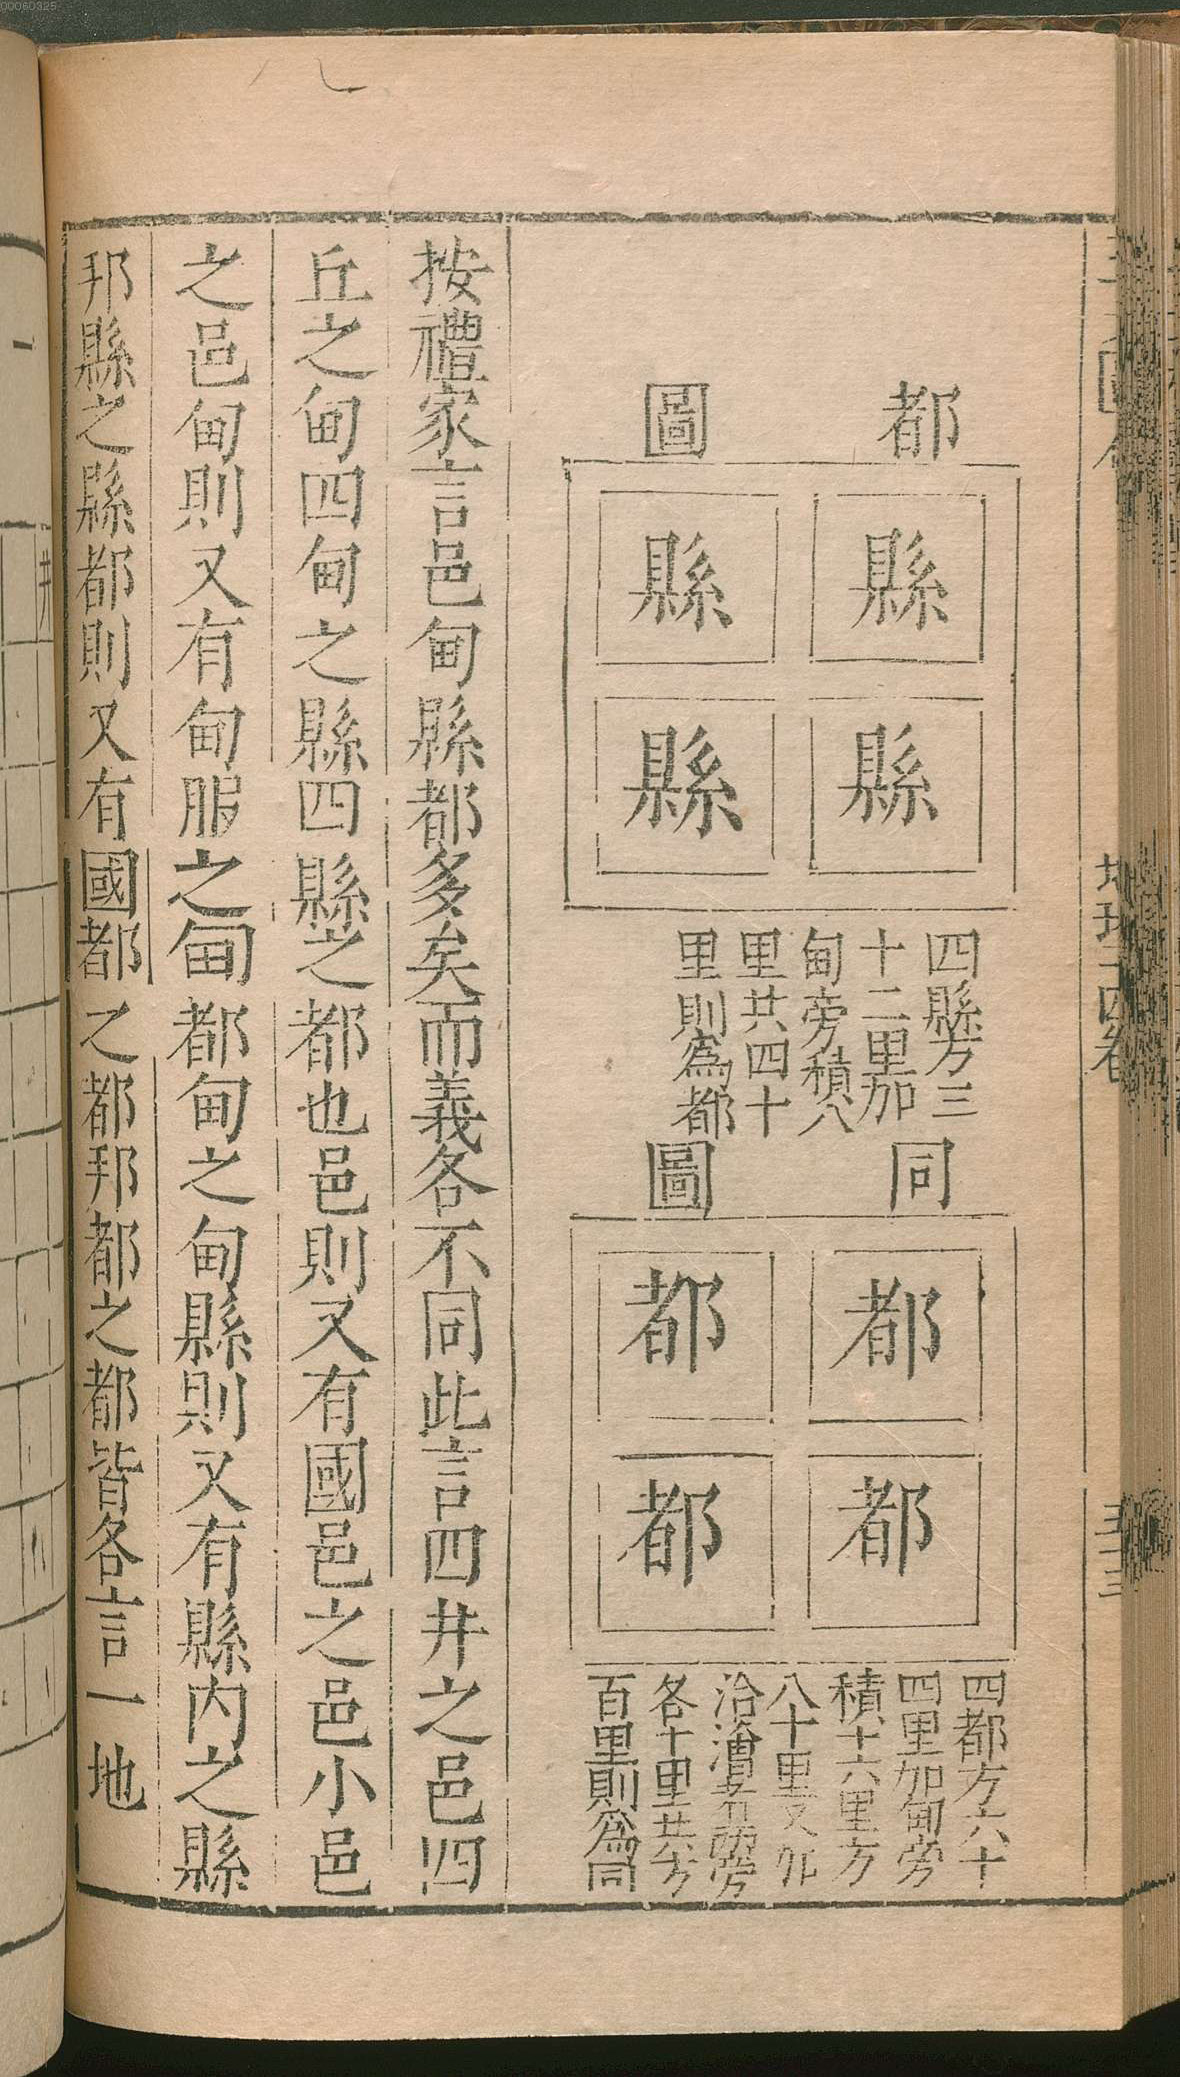 00060325
都圖
縣縣
縣縣
四縣方三
十二里加
甸旁積八
里共四十
里則為都
同圖
都都
都都
四都方六十
四里加甸旁
積十六里方
八十里又加
洽澮
各十里共方
百里則為同
按禮家言邑甸縣都多矣而義各不同此言四井之邑四
丘之甸四甸之縣四縣之都也邑則又有國邑之邑小邑
之邑甸則又有甸服之甸都甸之甸縣則又有縣內之縣
邦縣之縣都則又有國都之都邦都之都皆各言一地